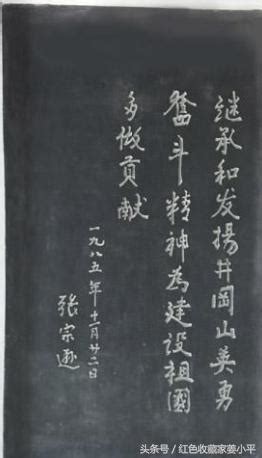 继承和发揚井岡山英勇
奮斗精神為建设祖國
多做貢献
一九八五年十一月廿二日
張宗遜
头条号/红色收藏家姜小平